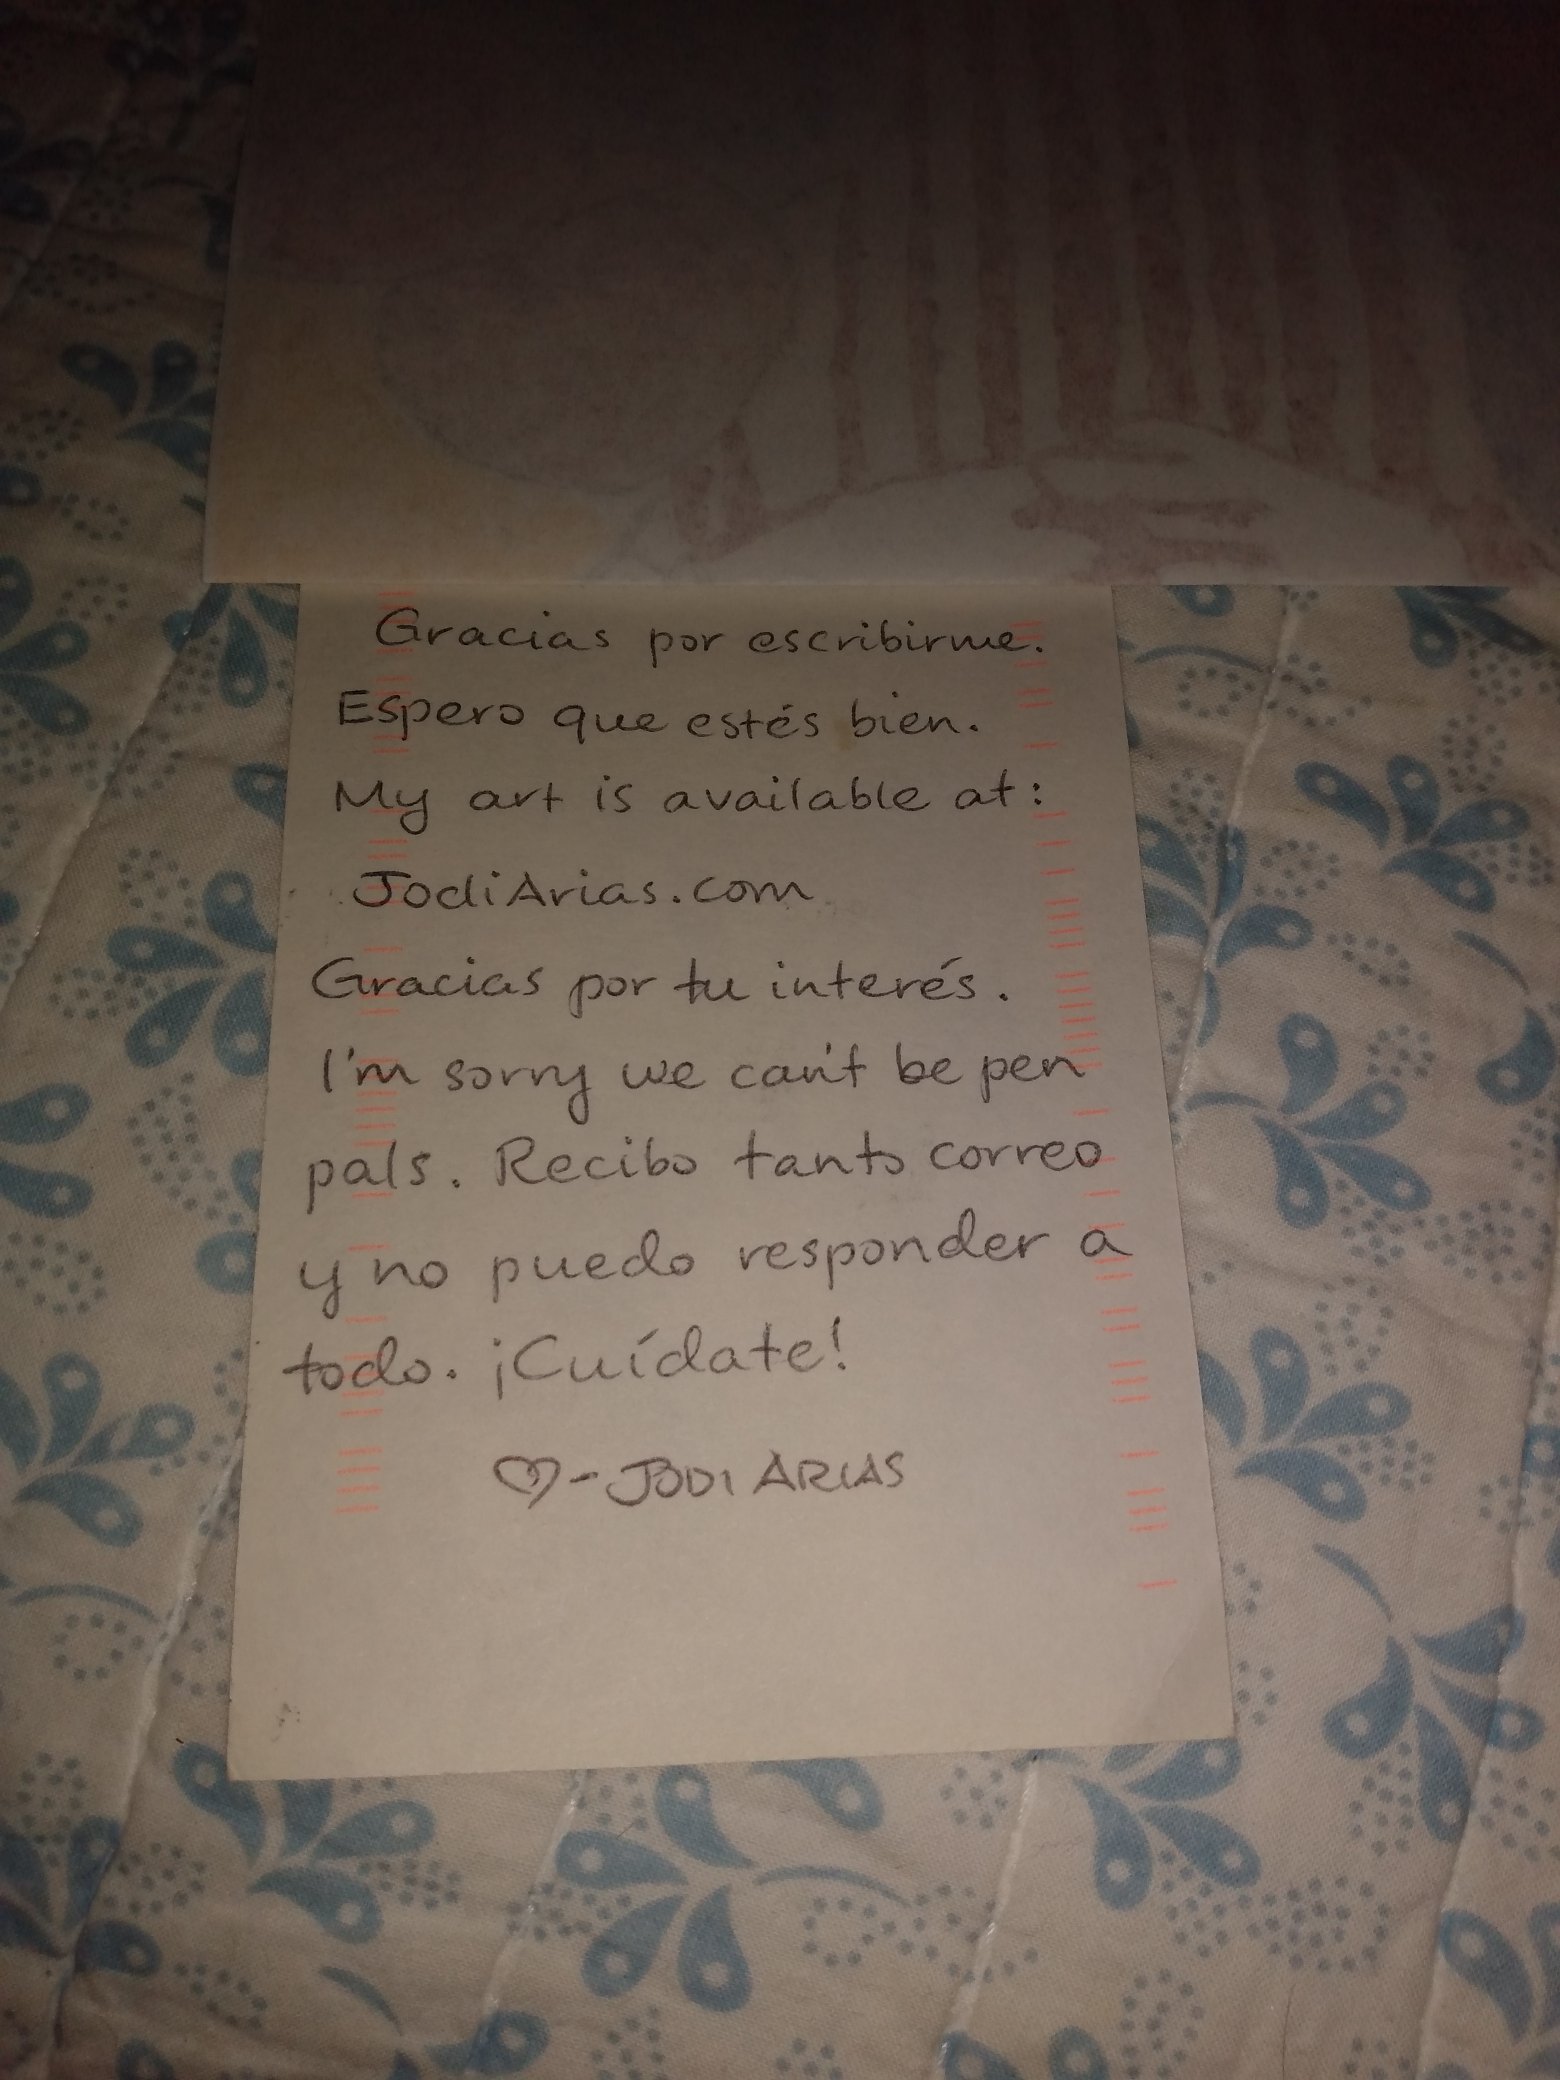 Gracias por escribirme.
Espero que estés bien.
My art is available at:
JodiArias.com
Gracias por tu interés.
I'm sorry we can't be pen
pals. Recibo tanto correo
y no puedo responder a
todo. ¡Cuídate!
♡-JODI ARIAS